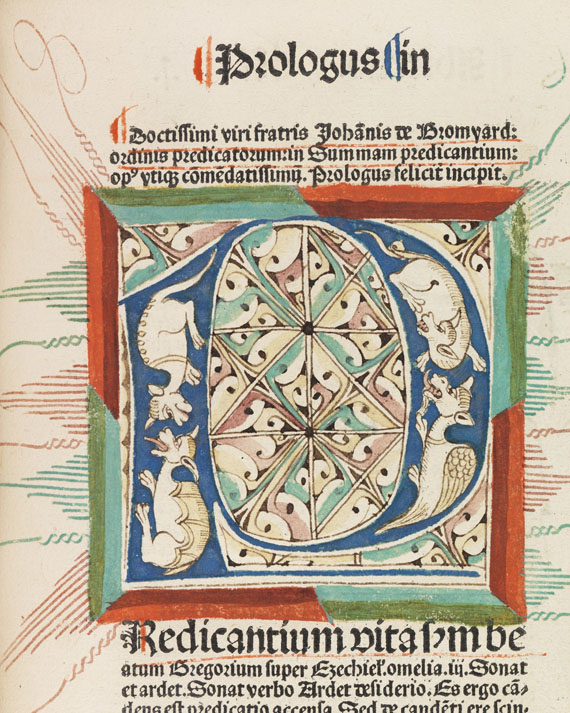 Prologus in
Doctissimi viri fratris Johānis de Bromyard:
ordinis predicatorum: in Summam predicantium:
opꝰ vtiqꝫ cōmēdatissimū. Prologus feliciť incipit.
P
Redicantium vita sƺm be
atum Gregorium super Ezechieł. omelia. iij. Sonat
et ardet. Sonat verbo Ardet desiderio. Es ergo cā-
dens est predicatio accensa. Sed de candēti ere scin-